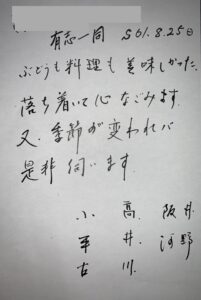 有志一同 S61.8.25日
ぶどうも料理も美味しかった.
落ち着いて心なごみます.
又、季節が変われバ
是非伺います.
小高. 阪井.
平井. 河野
古川.